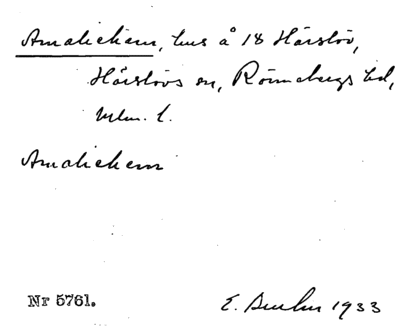 Amaliehem, hus å 18 Hårslöv,
Hårslövs sn, Rönnebergs hd,
Mlm. l.
Amaliehem
Nr 5761.
E. 1933